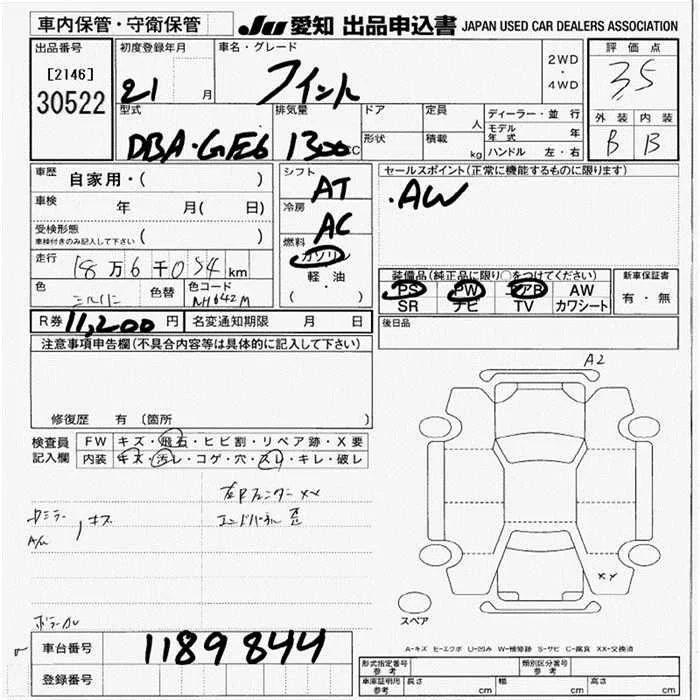 車内保管・守衛保管
JU 愛知 出品申込書 JAPAN USED CAR DEALERS ASSOCIATION
出品番号
[2146]
30522
初度登録年月
21 月
車名・グレード
フィット
2WD
・
4WD
評価点
3.5
外装 内装
B B
型式
DBA・GE6
排気量
1300CC
ドア
形状
定員 人
積載 kg
ディーラー・並行
モデル年式 年
ハンドル 左・右
車歴 自家用・( )
車検 年 月( 日)
受検形態
車検付きのみ記入して下さい ( )
走行 18万6千054km
色 シルバー
色替
色コード NH642M
シフト AT
冷房 AC
燃料
ガソリン
軽・油
( )
セールスポイント(正常に機能するものに限ります)
・AW
装備品(純正品に限り○をつけてください)
PS PW エアB AW
SR ナビ TV カワシート
新車保証書
有・無
R券 11,200円 名変通知期限 月 日
後日品
注意事項申告欄(不具合内容等は具体的に記入して下さい)
修復歴 有 〔箇所
検査員
記入欄
FW キズ・飛石・ヒビ割・リペア跡・X要
内装 キズ・汚レ・コゲ・穴・スレ・キレ・破レ
左Fフェンダー XX
エンドパネル 歪
キズ
A2
XY
スペア
A-キズ E-エクボ U-凹み W-補修跡 S-サビ C-腐食 XX-交換済
車台番号 1189844
登録番号
形式指定番号
参考
類別区分番号
参考
車庫証明用
参考
長さ cm 幅 cm 高さ cm